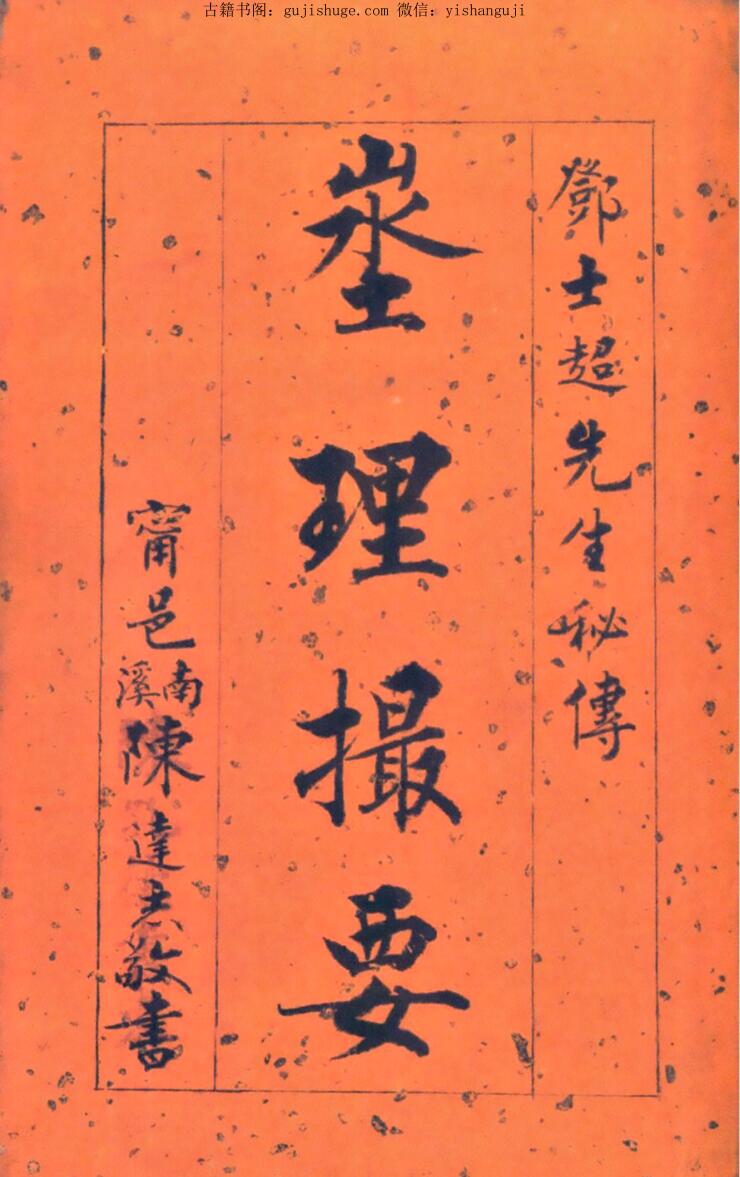 古籍书阁：gujishuge.com 微信：yishanguji
鄧士超先生秘傳
埊理撮要
甯邑南溪陳達志敬書